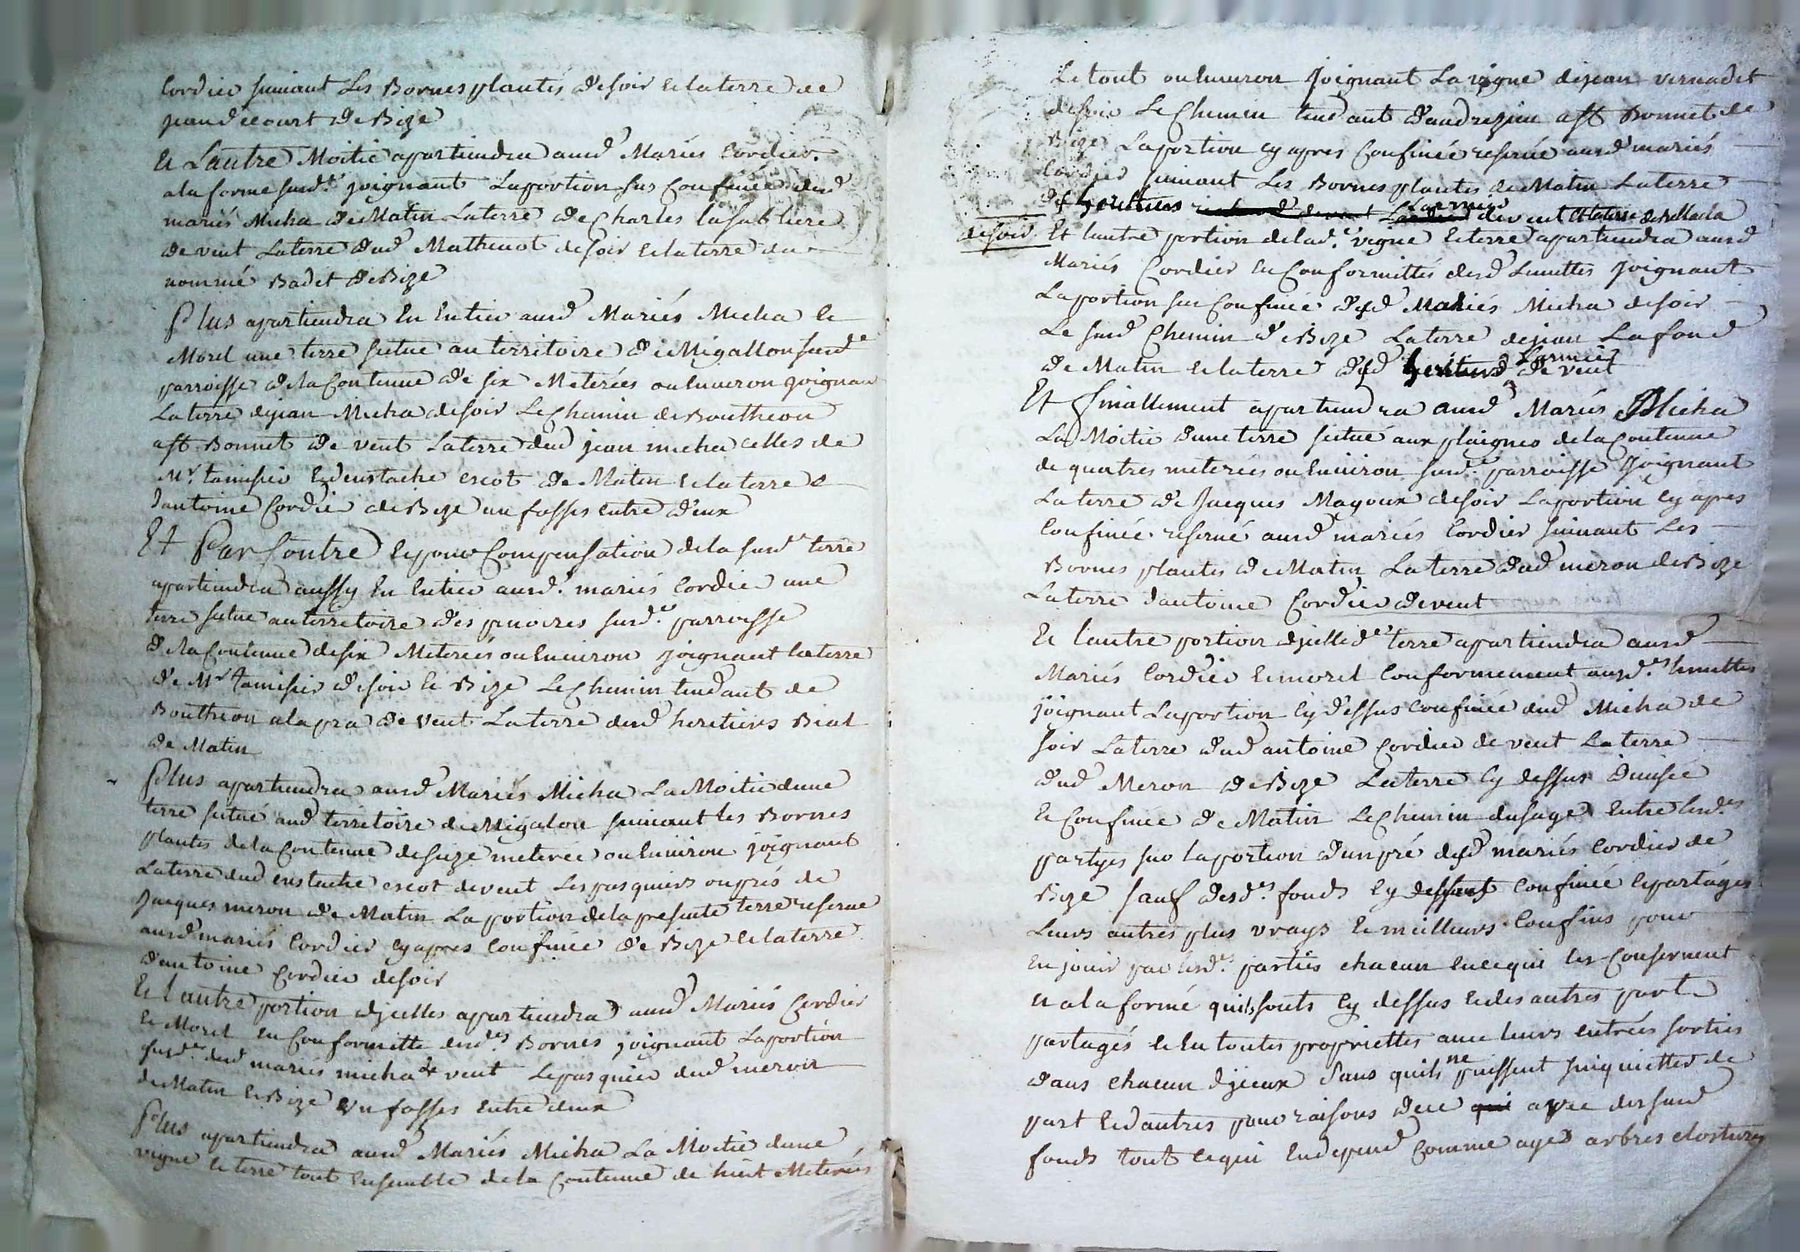 Cordier suivant Les Bornes plantés de soir et la terre de
jean decourt de Bize
Et L'autre Moitié apartiendra ausd Mariés Cordier
a la forme susd.e joignant La portion sus Confinée dud
mariés Micha de Matin La terre de Charles la sabliere
de vent La terre dud Mathinot de soir et la terre du
nommé Badet de Bize
Plus apartiendra En Entier ausd Mariés Micha et
Morel une terre situe au territoire de Migallon susd.e
parroisse de la Contenue de six Meterées ou Environ joignan
La terre de jean Micha de soir Le Chemin de Boutheon
a st Bonnet de vent La terre dud jean micha celles de
Mr. tamisier Et deustache escot de Matin et la terre
dantoine Cordier de Bize un fosses entre d'eux
Et Par Contre Et pour Compensation de la susd.e terre
apartiendra aussy En Entier ausd. mariés Cordier une
terre situe au territoire des pinoires susd.e parroisse
de la Contenue de six Meterées ou Environ joignant la terre
de Mr tamisier de soir et Bize Le Chemin tendant de
Boutheon a la pra de vent La terre desd heritiers Biat
de Matin
Plus apartiendra ausd Mariés Micha La Moitié dune
terre situé aud territoire de Migalon suivant les Bornes
plantés de la Contenue de seize meterée ou Environ joignant
La terre dud eustache escot de vent Les pasquiers ou prés de
Jacques meron de Matin La portion de la presente terre reserve
ausd mariés Cordier cy apres Confinée de Bize et la terre
dantoine Cordier de soir
Et l'autre portion djcelles apartiendra ausd Mariés Cordier
et Morel En Conformitté desd.es Bornes joignant La portion
susd.e dud mariés micha de vent Le pasquier dud meron
de Matin et Bize un fosses entre deux
Plus apartiendra ausd Mariés Micha La Moitié dune
vigne et terre tout Ensemble de la Contenue de huit Meterées
Le tout ou Environ Joignant La vigne de jean vernadet
de soir Le Chemin tendant d'andrezieu a st Bonnet de
Bize La portion cy apres Confinée reservé ausd mariés
Cordier suivant Les Bornes plantes de Matin La terre
des heritiers Larmier de vent et la terre de
de soir
Et lautre portion de lad.e vigne et terre apartiendra ausd
Mariés Cordier en Conformittés desd Limittes joignant
La portion sus Confinée desd Mariés Micha de soir
Le susd Chemin de Bize La terre de jean Lafond
de Matin et la terre desd heritiers Larmier de vent
Et finallement apartiendra ausd Mariés Micha
La Moitié dune terre situé aux plaignes de la Contenue
de quatres meterées ou Environ susd.e parroisse Joignant
La terre de Jacques Magoux de soir La portion cy apres
Confinée reservé ausd mariés Cordier suivant Les
Bornes plantes de Matin La terre dud meron de Bize
La terre dantoine Cordier de vent
Et l'autre portion djcelle d.e terre apartiendra ausd
Mariés Cordier et morel Conformement ausd.es Limittes
joignant La portion Cy dessus Confinée dud Micha de
soir La terre dud antoine Cordier de vent La terre
dud Meron de Bize La terre Cy dessus divisée
et Confinée de Matin Le Chemin dusage Entre Lesd.es
partyes sur la portion dun pré desd mariés Cordier de
Bize sauf desd.es fonds Cy dessus Confinée Et partagés
Leurs autres plus vrays Et meilleurs Confins pour
En jouir par Lesd.es parties chacun En ce qui les Concernent
et a la forme quils sonts Cy dessus et des autres part
partagés et En toutes propriettes avec leurs entrées sorties
dans chacun djceux sans quils ne puissent sinquietter de
part Et dautres pour raisons de ce qui avec dessusd
fonds tout ce qui En depend Comme ayes arbres clostures